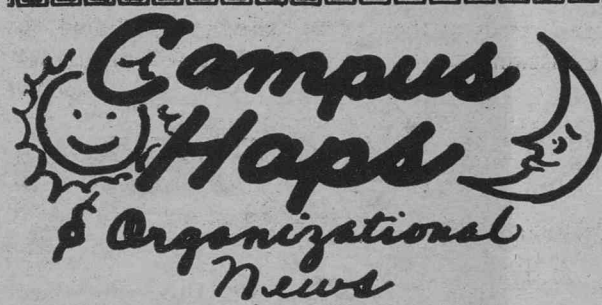 Campus
Haps
& Organizational
News